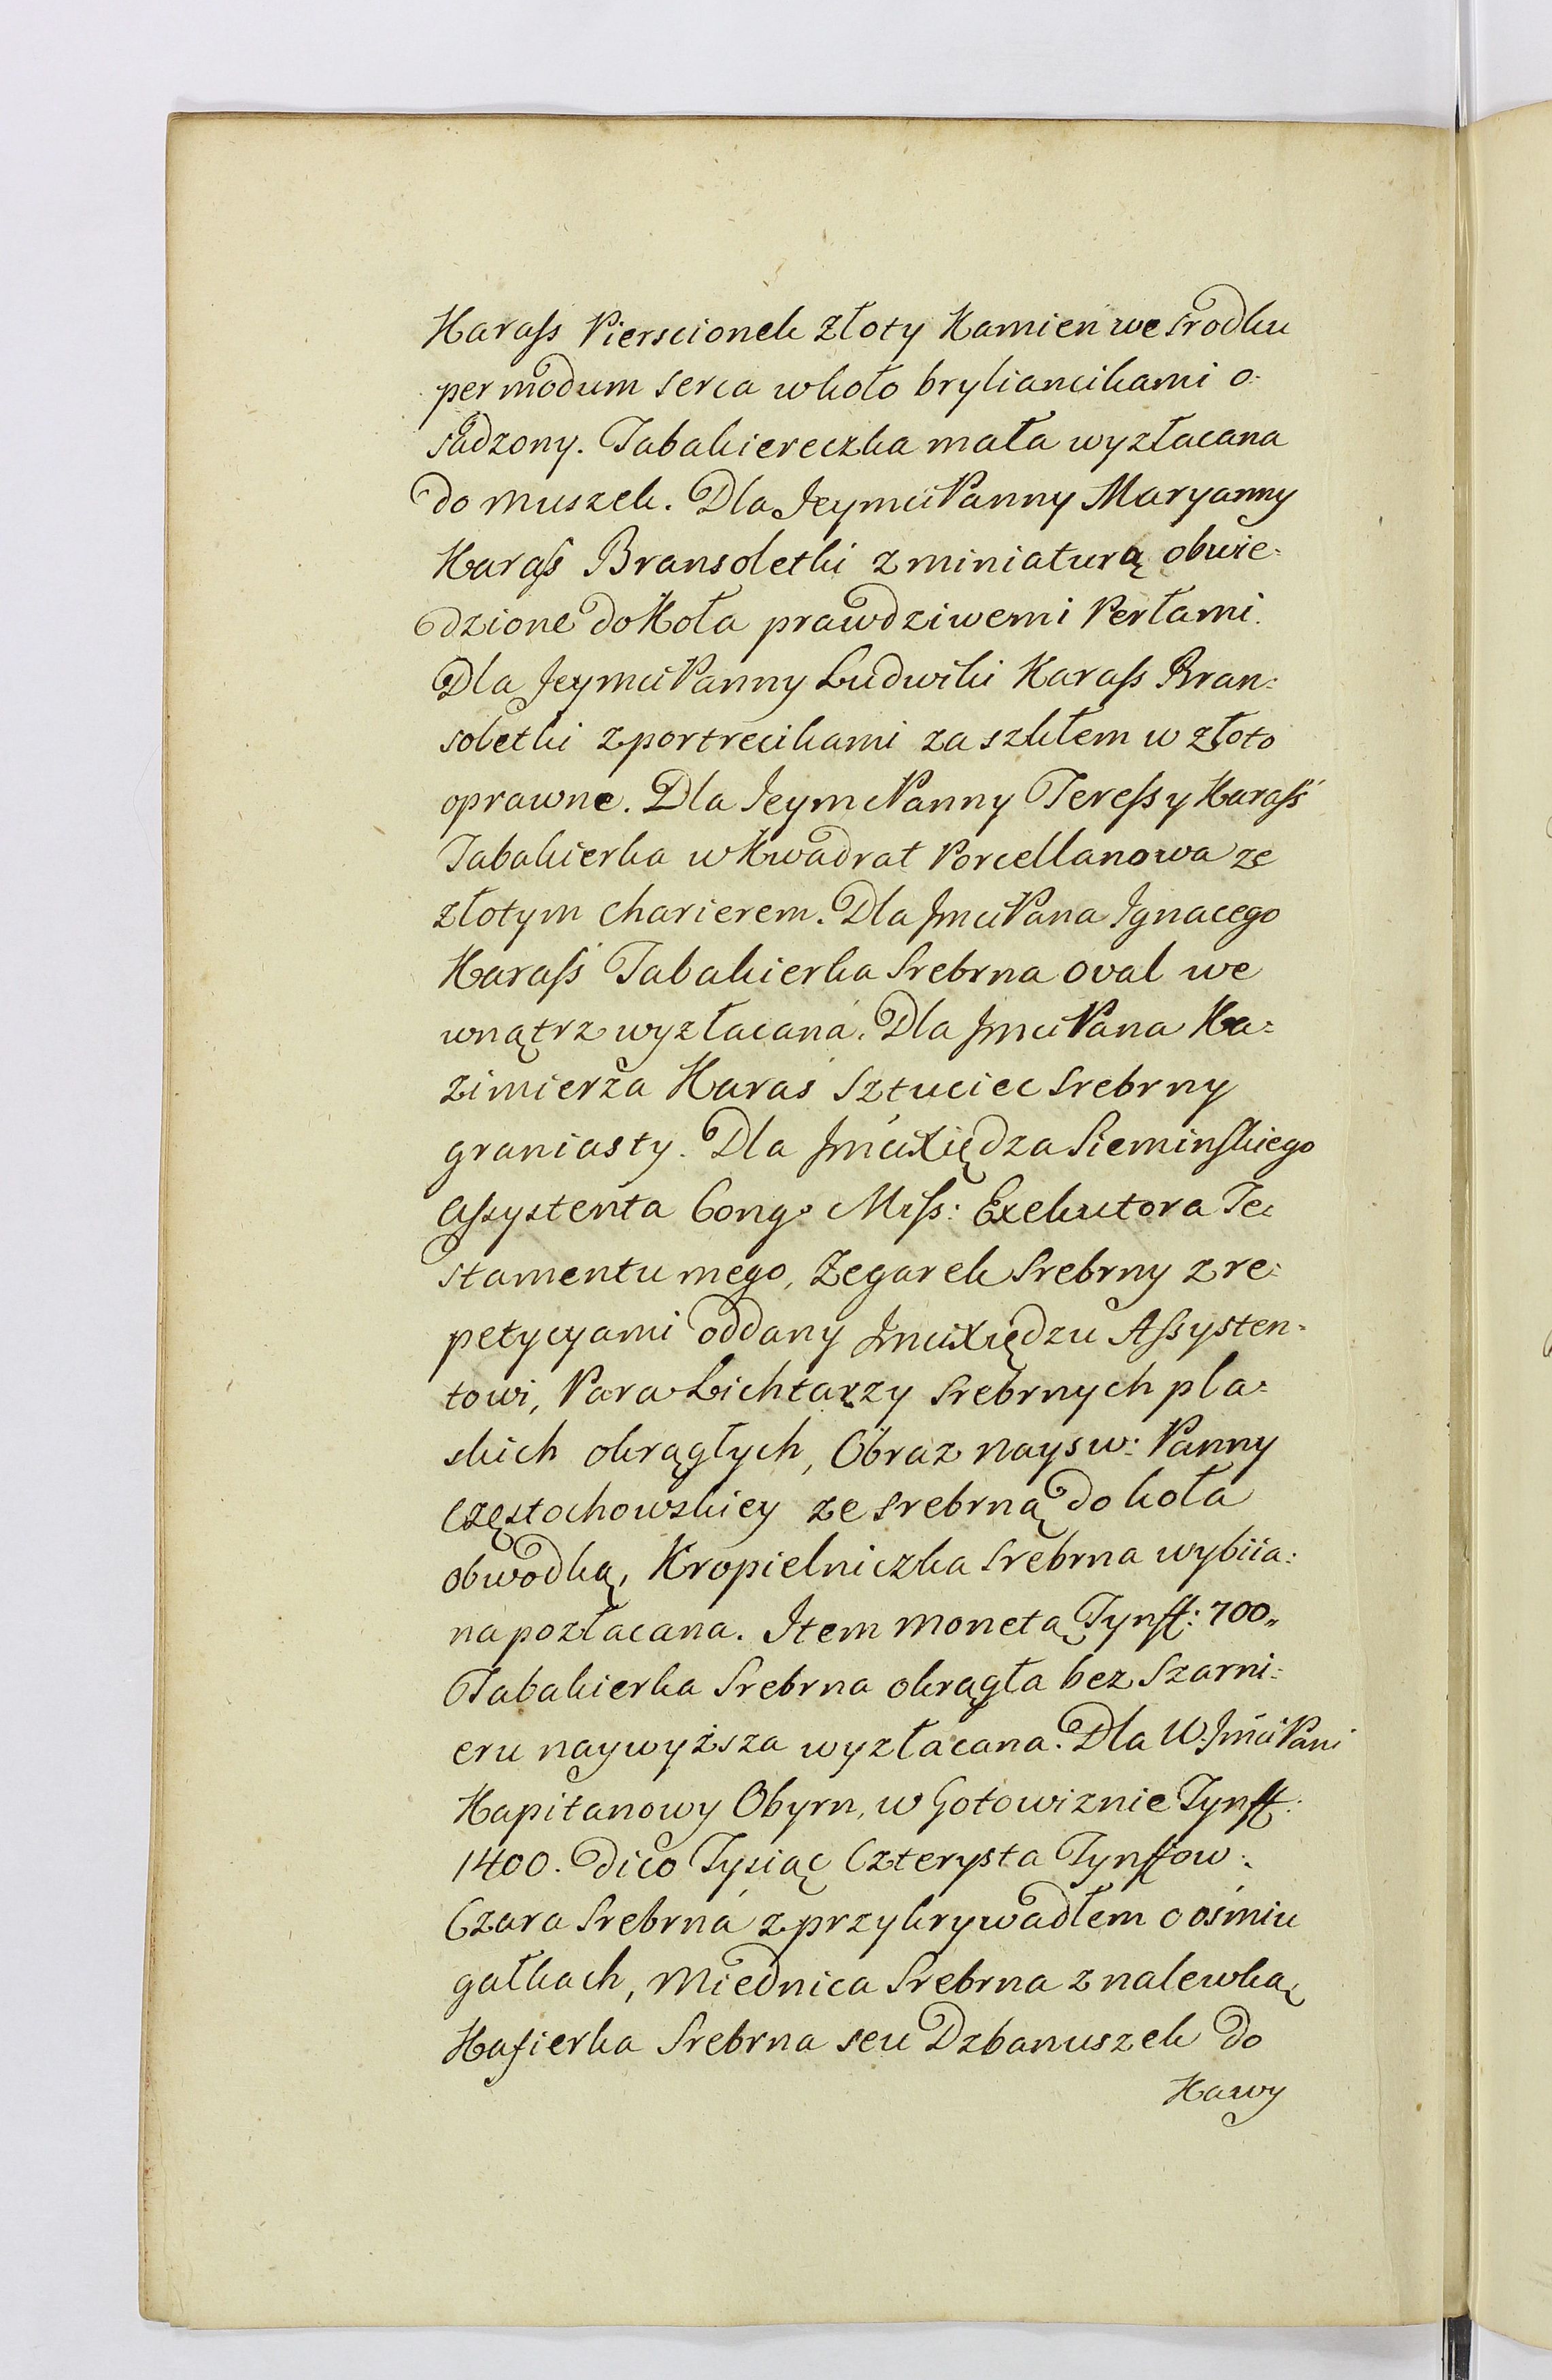 Karaſs Pierscionek złoty Kamien we srodku
per modum serca wkoło bryliancikami o:
sadzony. Tabakiereczka mała wyzłacana
do muszek. Dla Jeymci Panny Maryanny
Karaſs Bransoletki z miniaturą obwie:
dzione do Koła prawdziwemi Perłami.
Dla Jeymci Panny Ludwiki Karaſs Bran:
soletki z portrecikami za szkłem w złoto
oprawne. Dla Jeymc Panny Tereſsy Karaſś
Tabakierka w Kwadrat Porcellanowa ze
złotym charierem. Dla Jmci Pana Ignacego
Karaſś Tabakierka Srebrna oval we
wnątrz wyzłacana. Dla Jmci Pana Ka:
zimierza Karaś Sztuciec Srebrny
graniasty. Dla Jmci Xiędza Sieminſkiego
Aſsystenta Cong: Miſs: Exekutora Te:
stamentu mego, Zegarek Srebrny z re:
petycyami oddany Jmci Xiędzu Aſsysten:
towi, Para Lichtarzy Srebrnych pla:
skich okrągłych, Obraz nayśw: Panny
Częstochowskiey ze srebrną do koła
obwodką, Kropielniczka Srebrna wybiia:
na pozłacana. Item monetą Tynff: 700„
Tabakierka Srebrna okrągła bez Szarni:
eru naywyższa wyzłacana. Dla W. Jmci Pani
Kapitanowy Obyrn, w Gotowiznie Tynff:
1400. dico Tysiąc Czterysta Tynffow:
Czara Srebrna z przykrywadłem o ośmiu
gałkach, Miednica Srebrna z nalewką
Kafierka Srebrna seu Dzbanuszek do
Kawy